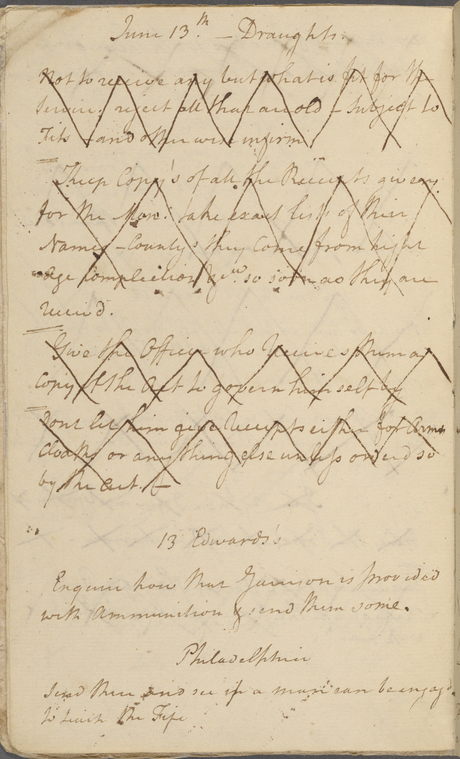 June 13th. — Draughts.
Not to receive any but what is fit for the
Service; reject all that are old — Subject to
Fits — and otherwise infirm
Keep Copy's of all the Receipts given
for the Men: take exact lists of their
Names — Countys they come from hight
Age Complection &ca. so soon as they are
receivd.
Give the Officer who receives them a
Copy of the Act to govern himself by
Dont let him give Receipts either for Arms
Cloaths or any thing else unless orderd so
by the Act. —
13 Edwards's
Enquire how that Garrison is provided
with Ammunition & send them some.
Philadelphia
Send there and see if a man can be engagd
to teach the Fife